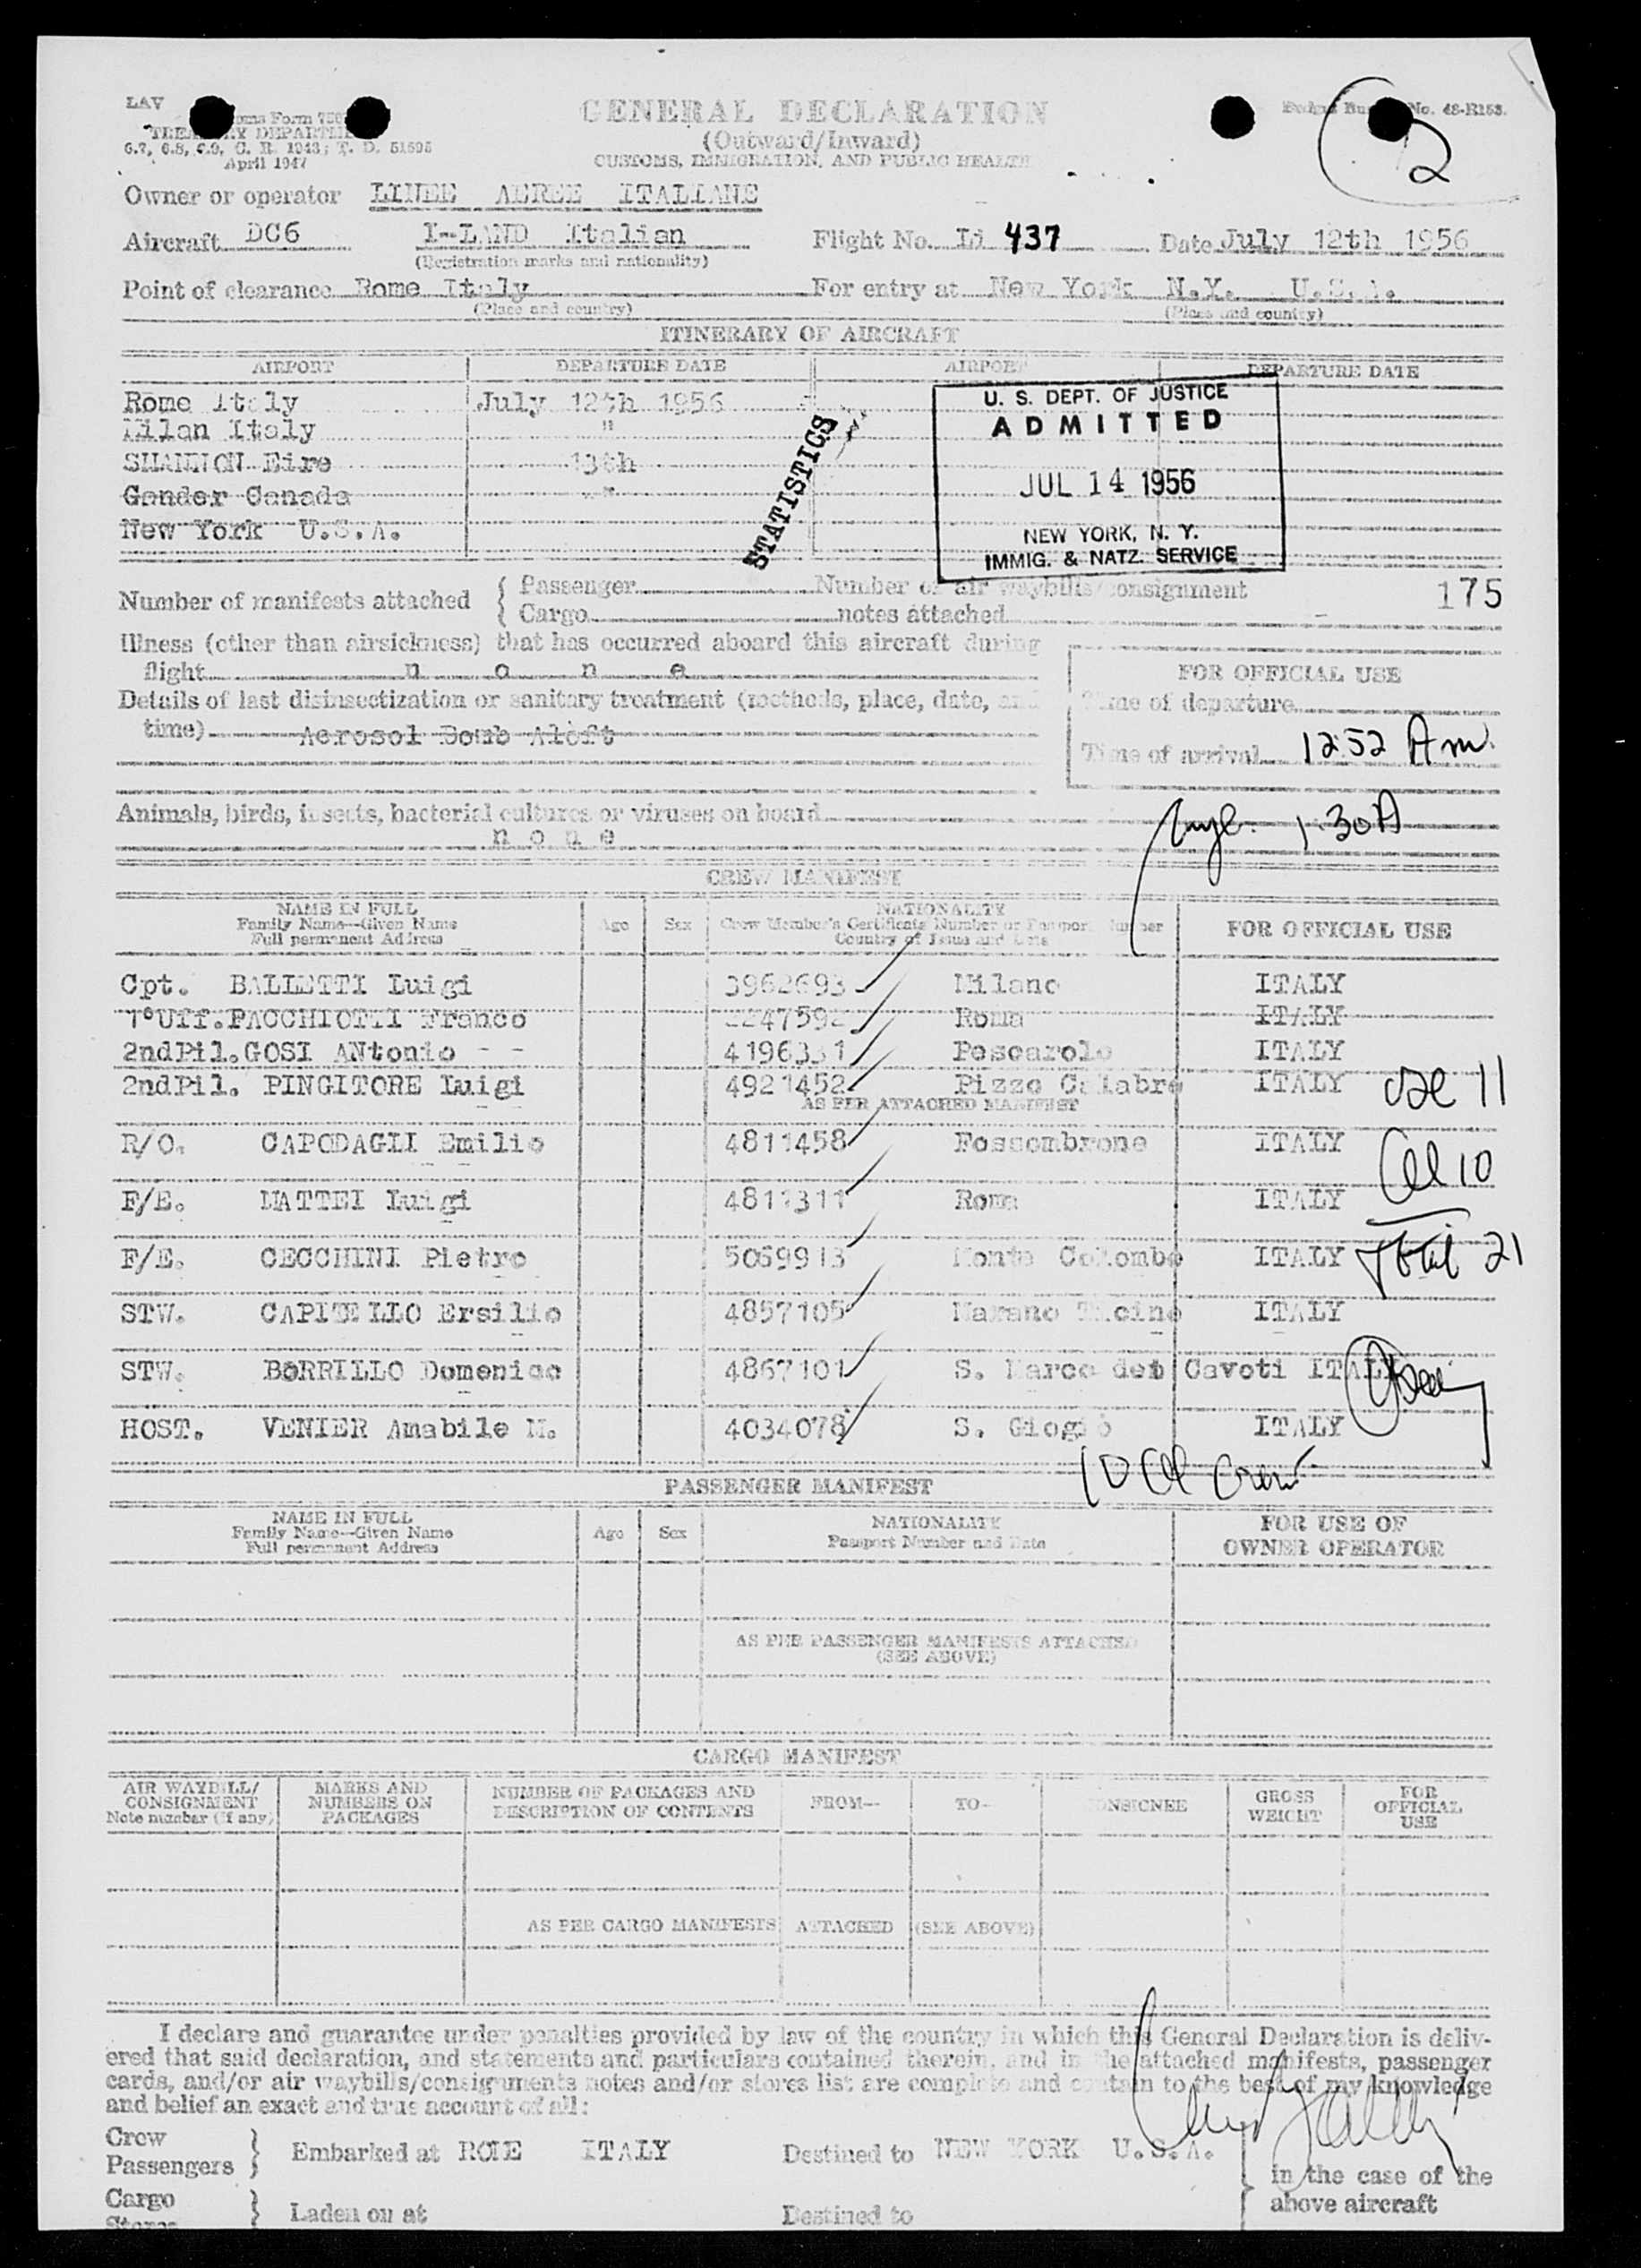 LAV
GENERAL DECLARATION
(Outward/Inward)
CUSTOMS, IMMIGRATION, AND PUBLIC HEALTH
No. 48-R153.
2
6.7, 6.8, 6.9, C. R. 1943; T. D. 51695
April 1947
Owner or operator LINEE AEREE ITALIANE
Aircraft DC6 I-LAND Italian Flight No. Li 437 Date July 12th 1956
(Registration marks and nationality)
Point of clearance Rome Italy For entry at New York N.Y. U.S.A.
(Place and country) (Place and country)
ITINERARY OF AIRCRAFT
AIRPORT DEPARTURE DATE AIRPORT DEPARTURE DATE
Rome Italy July 12th 1956
Milan Italy "
SHANNON Eire 13th
Gander Canada "
New York U.S.A.
STATISTICS
U. S. DEPT. OF JUSTICE
ADMITTED
JUL 14 1956
NEW YORK, N. Y.
IMMIG. & NATZ. SERVICE
Number of manifests attached { Passenger Number of air waybills/consignment 175
{ Cargo notes attached
Illness (other than airsickness) that has occurred aboard this aircraft during
flight n o n e
Details of last disinsectization or sanitary treatment (methods, place, date, and
time) Aerosol Bomb Aloft
FOR OFFICIAL USE
Time of departure
Time of arrival 12 52 Am.
Animals, birds, insects, bacterial cultures or viruses on board
n o n e
1:30 A
CREW MANIFEST
NAME IN FULL
Family Name—Given Name
Full permanent Address
Age Sex
NATIONALITY
Crew Member's Certificate Number or Passport Number
Country of Issue and Date
FOR OFFICIAL USE
Cpt. BALLETTI Luigi 3962693 Milano ITALY
1°Uff. PACCHIOTTI Franco Roma ITALY
2ndPil. GOSI ANtonio - - 4196331 Pescarolo ITALY
2ndPil. PINGITORE Luigi 4921452 Pizzo Calabro ITALY
AS PER ATTACHED MANIFEST
11
R/O. CAPODAGLI Emilio 4811458 Fossombrone ITALY
10
F/E. MATTEI Luigi 4811311 Roma ITALY
F/E. CECCHINI Pietro 5069913 Monte Colombo ITALY
Total 21
STW. CAPITELLO Ersilio 4857105 Marano Ticino ITALY
STW. BORRILLO Domenico 4867101 S. Marco dei Cavoti ITALY
HOST. VENIER Amabile M. 4034078 S. Giogio ITALY
10 Al Crew
PASSENGER MANIFEST
NAME IN FULL
Family Name—Given Name
Full permanent Address
Age Sex
NATIONALITY
Passport Number and Date
FOR USE OF
OWNER OPERATOR
AS PER PASSENGER MANIFESTS ATTACHED
(SEE ABOVE)
CARGO MANIFEST
AIR WAYBILL/
CONSIGNMENT
Note number (if any)
MARKS AND
NUMBERS ON
PACKAGES
NUMBER OF PACKAGES AND
DESCRIPTION OF CONTENTS
FROM— TO— CONSIGNEE
GROSS
WEIGHT
FOR
OFFICIAL
USE
AS PER CARGO MANIFESTS ATTACHED (SEE ABOVE)
I declare and guarantee under penalties provided by law of the country in which this General Declaration is deliv-
ered that said declaration, and statements and particulars contained therein, and in the attached manifests, passenger
cards, and/or air waybills/consignments notes and/or stores list are complete and contain to the best of my knowledge
and belief an exact and true account of all:
Crew
Passengers } Embarked at ROME ITALY Destined to NEW YORK U.S.A.
in the case of the
above aircraft
Cargo
Stores } Laden on at Destined to